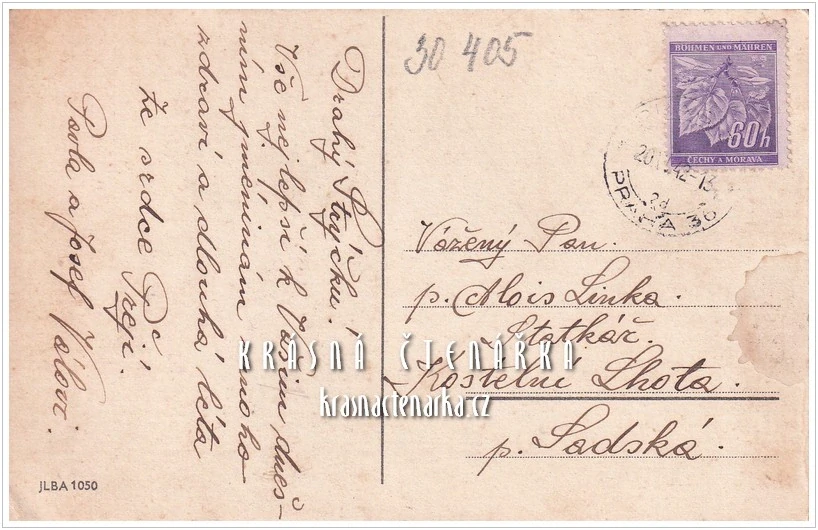 30 405
BÖHMEN UND MÄHREN
60h
ČECHY A MORAVA
PRAHA 30
Drahý Strýčku!
Vše nejlepší k Vašim dneš-
ním jmeninám mnoho
zdraví a dlouhá léta
ze srdce Přejí.
Pavla a Josef Válovi.
Vážený Pan.
p. Alois Linka.
Statkář.
Kostelní Lhota.
p. Sadská.
KRÁSNÁ ČTENÁŘKA
krasnactenarka.cz
JLBA 1050